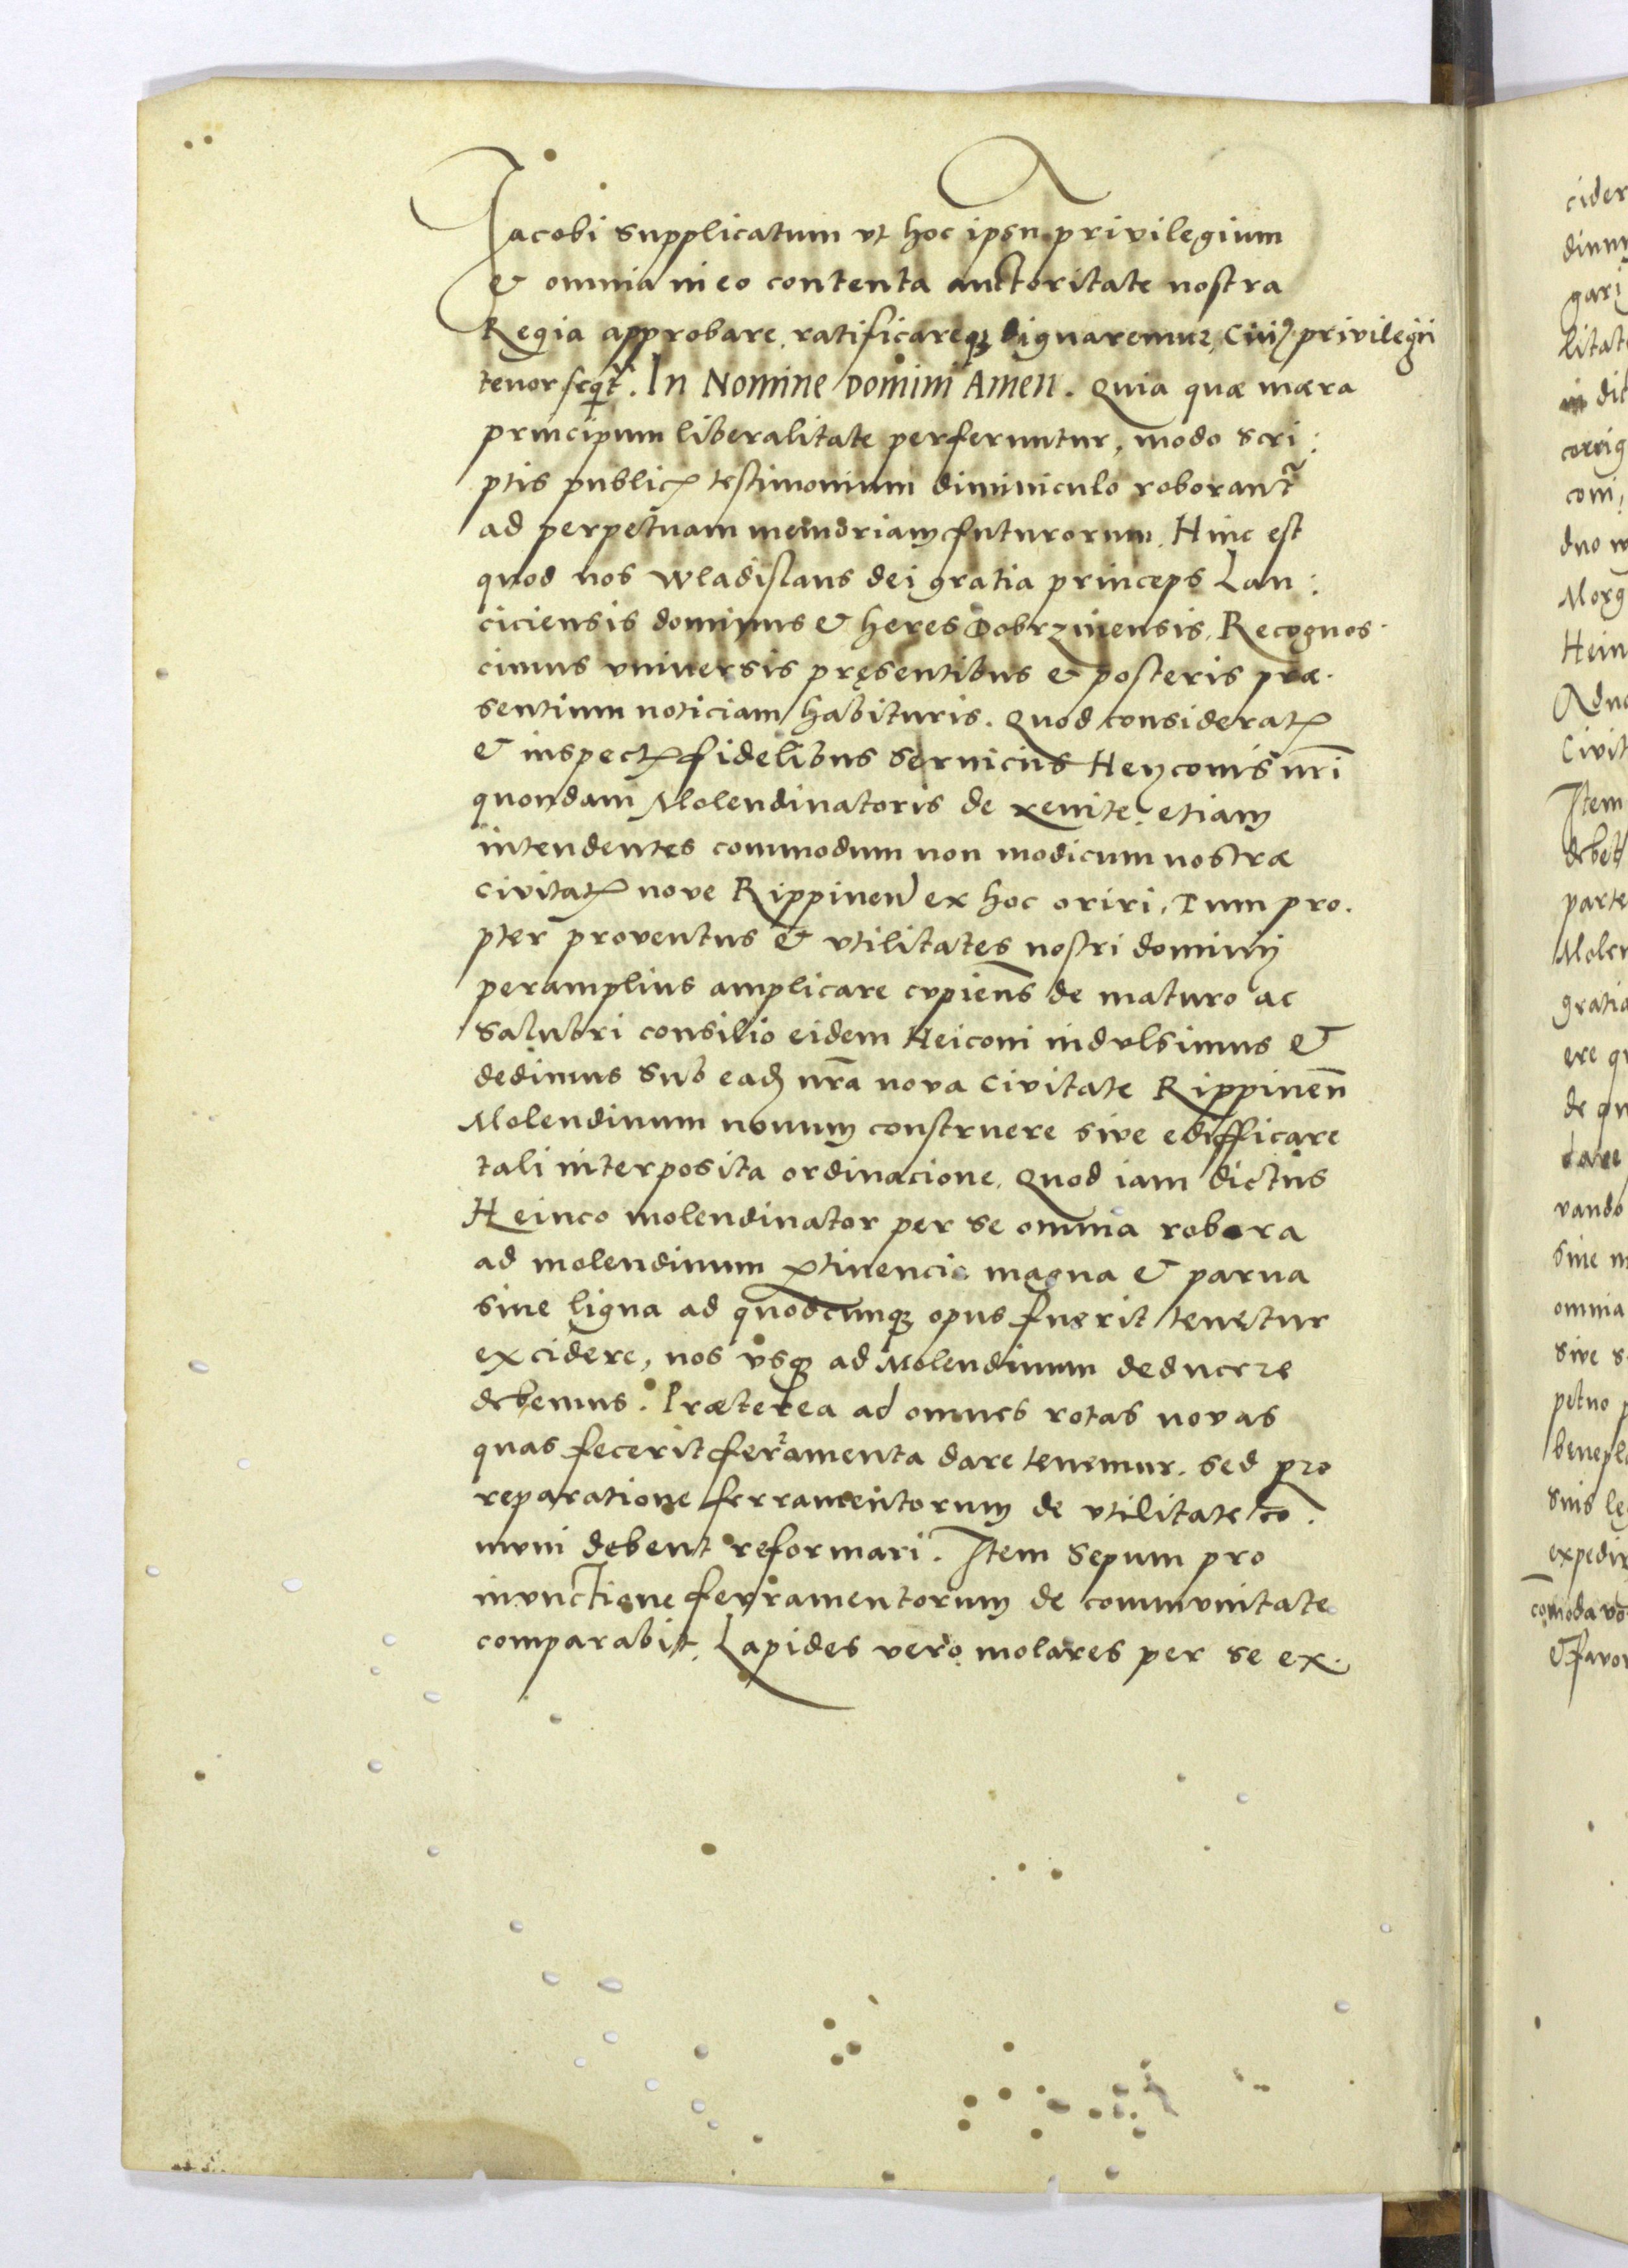 Jacobi supplicatum vt hoc ipsū privilegium
& omnia in eo contenta auctoritate nostra
Regia approbare ratificareqȝ dignaremur, Cuiꝰ privilegii
tenor seqͥtr̃. In Nomine Domini Amen. Quia quæ mæra
principum liberalitate perferuntur, modo scri:
ptis publicꝭ testimonium diminiculo roborantr̃
ad perpetuam memoriam futurorum. Hinc est
quod nos Wladislaus dei gratia princeps Lan:
ciciensis dominus & heres Dobrzinensis, Recognos-
cimus vniversis pręsentibus & posteris præ-
sentium noticiam habituris. Quod consideratꝭ
& inspectꝭ fidelibus seruiciis Heyconis nr̃i
quondam Molendinatoris de xenite, etiam
intendentes commodum non modicum nostræ
civitatꝭ nove Rippineñ ex hoc oriri, Tum pro-
pter proventus & vtilitates nostri dominij
peramplius amplicare cvpiens̃ de maturo ac
salubri consilio eidem Heiconi indvlsimus &
dedimus sub eadȝ nr̃a nova Civitate Rippineñ
Molendinum nouum construere sive edifficare
tali interposita ordinacione, Quod iam dictus
Heinco molendinator per se omnia robora
ad molendinum ꝑtinencia magna & parua
sive ligna ad quodcunqȝ opus fuerit tenetur
excidere, nos vsqȝ ad Molendinum deducere
debemus. Præterea ad omnes rotas novas
quas fecerit ferramenta dare tenemur. sed pro
reparatione ferramentorum de vtilitate co-
mvni debent reformari. Item sepum pro
invnctione ferramentorum de commvnitate
comparabit. Lapides vero molares per se ex-
cider
dinu
gari
litat
in dic
corrig
coni
duo
Morg
Hein
Adu
Civit
Item
debet
parte
Molen
gratia
ere
de
dare
vando
sine
omnia
sive
petuo
benepl
suis
expedi
com̃oda
& favor